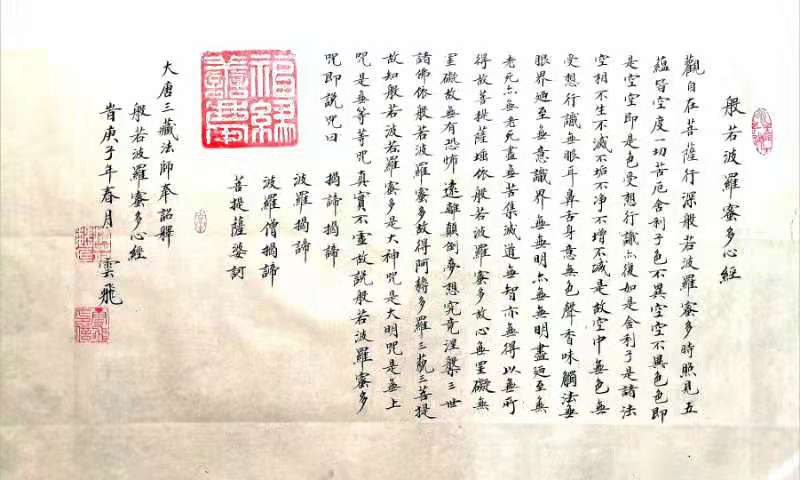 般若波羅蜜多心經
觀自在菩薩行深般若波羅蜜多時照見五
蘊皆空度一切苦厄舍利子色不異空空不異色色即
是空空即是色受想行識亦復如是舍利子是諸法
空相不生不滅不垢不净不增不减是故空中無色無
受想行識無眼耳鼻舌身意無色聲香味觸法無
眼界廼至無意識界無無明亦無無明盡廼至無
老死亦無老死盡無苦集滅道無智亦無得以無所
得故菩提薩埵依般若波羅蜜多故心無罣礙無
罣礙故無有恐怖遠離顛倒夢想究竟涅槃三世
諸佛依般若波羅蜜多故得阿耨多羅三藐三菩提
故知般若波若羅蜜多是大神咒是大明咒是無上
咒是無等等咒真實不虛故説般若波羅蜜多
咒即説咒曰
揭諦揭諦
波羅揭諦
波羅僧揭諦
菩提薩婆訶
大唐三藏法師奉詔釋
般若波羅蜜多心經
旹庚子年春月雲飛